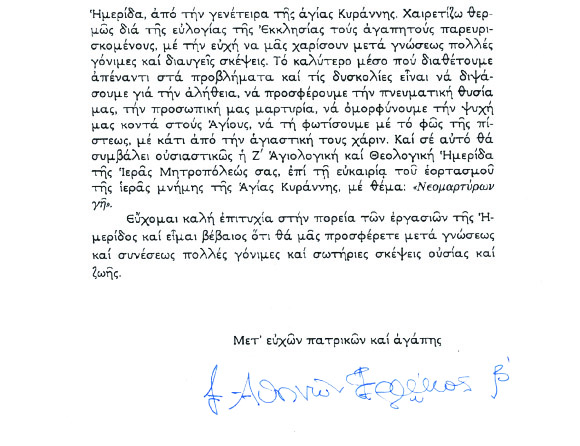 Ἡμερίδα, ἀπό τήν γενέτειρα τῆς ἁγίας Κυράννης. Χαιρετίζω θερ-
μῶς διά τῆς εὐλογίας τῆς Ἐκκλησίας τούς ἀγαπητούς παρευρι-
σκομένους, μέ τήν εὐχή να μᾶς χαρίσουν μετά γνώσεως πολλές
γόνιμες καί διαυγεῖς σκέψεις. Τό καλύτερο μέσο πού διαθέτουμε
ἀπέναντι στά προβλήματα καί τίς δυσκολίες εἶναι νά διψά-
σουμε γιά τήν ἀλήθεια, νά προσφέρουμε τήν πνευματική θυσία
μας, τήν προσωπική μας μαρτυρία, νά ὀμορφύνουμε τήν ψυχή
μας κοντά στούς Ἁγίους, νά τή φωτίσουμε μέ τό φῶς τῆς πί-
στεως, μέ κάτι ἀπό τήν ἁγιαστική τους χάριν. Καί σέ αὐτό θά
συμβάλει οὐσιαστικῶς ἡ Ζ΄ Ἁγιολογική καί Θεολογική Ἡμερίδα
τῆς Ἱερᾶς Μητροπόλεώς σας, ἐπί τῇ εὐκαιρίᾳ τοῦ ἑορτασμοῦ
τῆς ἱερᾶς μνήμης τῆς Ἁγίας Κυράννης, μέ θέμα: «Νεομαρτύρων
γῆ».
Εὔχομαι καλή ἐπιτυχία στήν πορεία τῶν ἐργασιῶν τῆς Ἡ-
μερίδος καί εἶμαι βέβαιος ὅτι θά μᾶς προσφέρετε μετά γνώσεως
καί συνέσεως πολλές γόνιμες καί σωτήριες σκέψεις οὐσίας καί
ζωῆς.
Μετ᾽ εὐχῶν πατρικῶν καί ἀγάπης
Ἀθηνῶν Ἱερώνυμος β΄